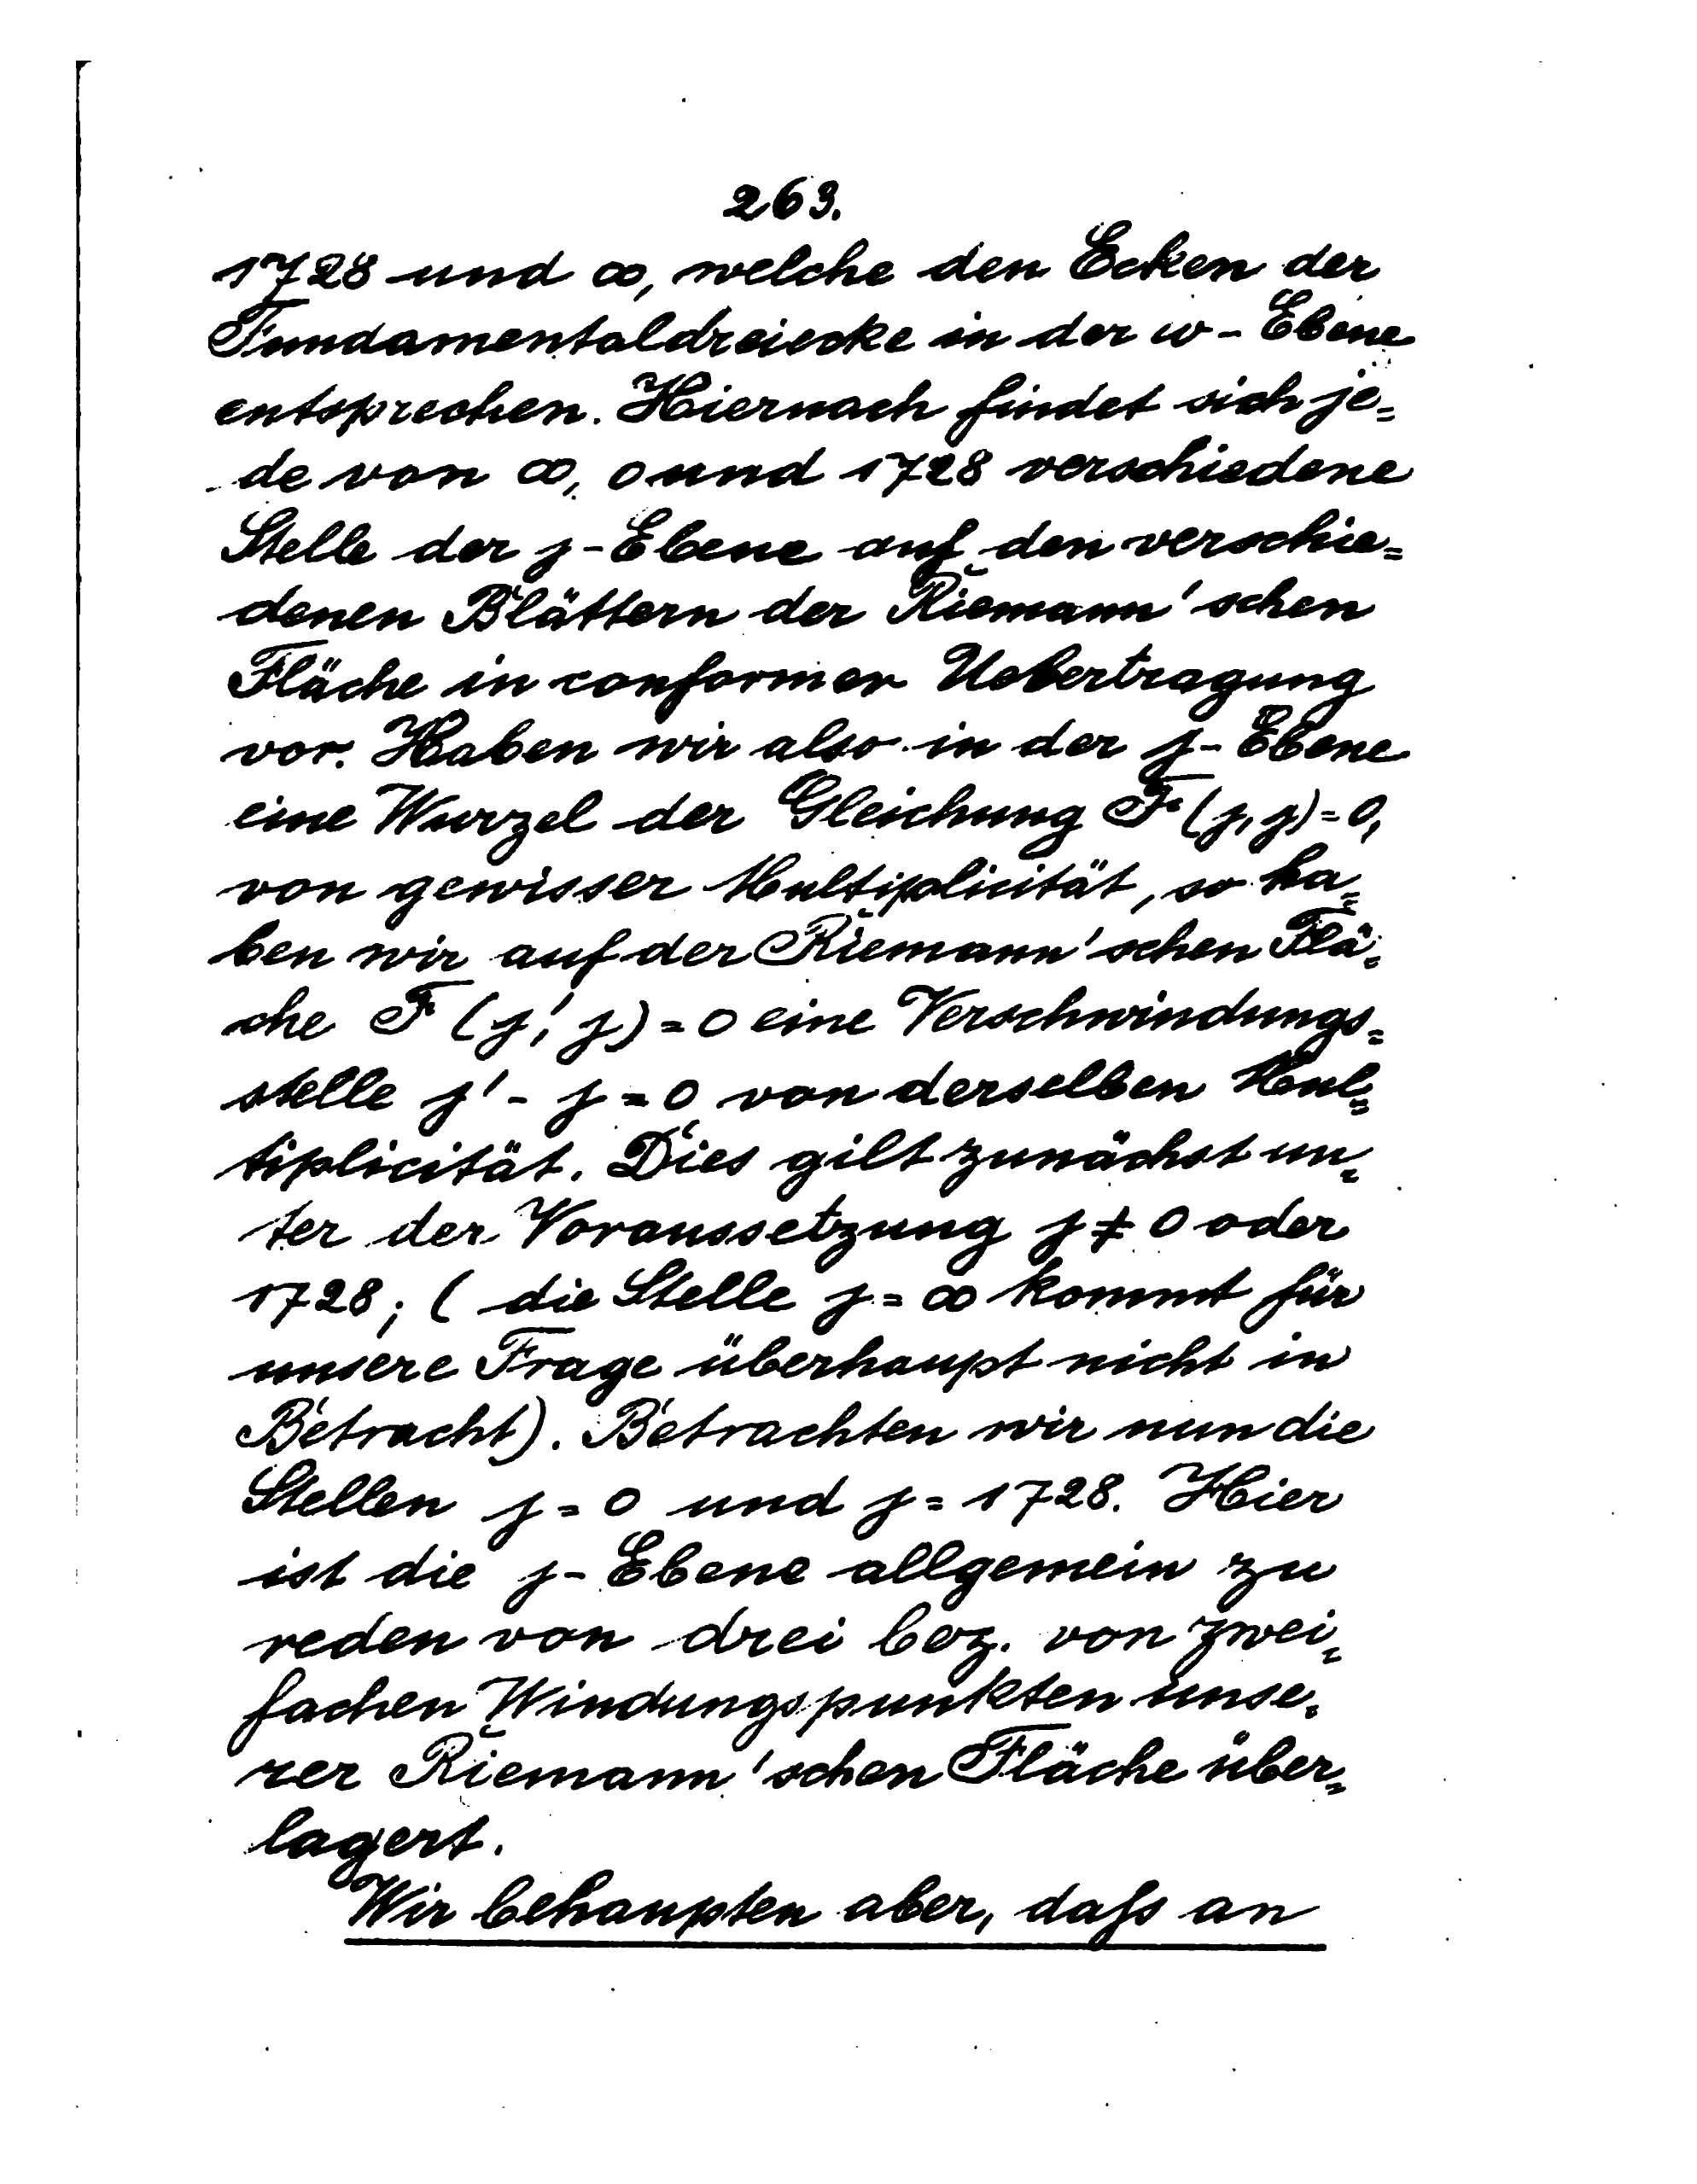 263.
1728 und ∞, welche den Ecken der
Fundamentaldreiecke in der w-Ebene
entsprechen. Hiernach findet sich je=
de von ∞, 0 und 1728 verschiedene
Stelle der j-Ebene auf den verschie=
denen Blättern der Riemann'schen
Fläche in conformer Uebertragung
vor. Haben wir also in der j-Ebene
eine Wurzel der Gleichung F(j,j)=0,
von gewisser Multiplicität, so ha=
ben wir auf der Riemann'schen Flä=
che F(j',j)=0 eine Verschwindungs=
stelle j'-j=0 von derselben Mul=
tiplicität. Dies gilt zunächst un=
ter der Voraussetzung j≠0 oder
1728; (die Stelle j=∞ kommt für
unsere Frage überhaupt nicht in
Betracht). Betrachten wir nun die
Stellen j=0 und j=1728. Hier
ist die j-Ebene allgemein zu
reden von drei bez. von zwei=
fachen Windungspunkten unse=
rer Riemann'schen Fläche über=
lagert.
Wir behaupten aber, daß an